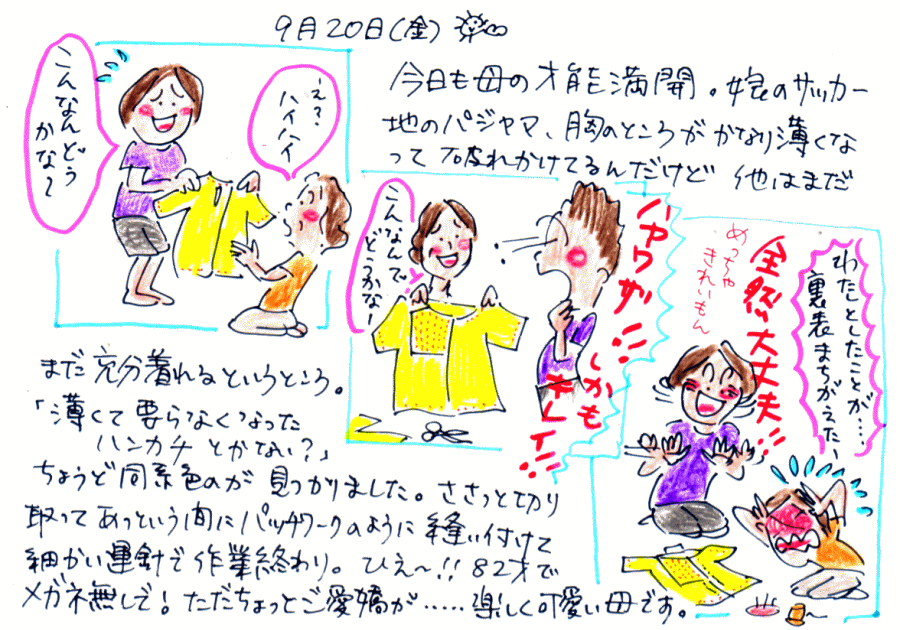 9月20日(金)
今日も母の才能満開。娘のサッカー
地のパジャマ、胸のところがかなり薄くな
って破れかけてるんだけど 他はまだ
こんなんどう
かな〜
え?
ハイハイ
こんなんで
どうかな〜
ハヤワザ!!
しかも
キレイ!!
全然大丈夫!!
めっちゃ
きれいもん
わたしとしたことが……
裏表まちがえた、
まだ充分着れるというところ。
「薄くて要らなくなった
ハンカチとかない?」
ちょうど同系色のが見つかりました。ささっと切り
取ってあっという間にパッチワークのように縫い付けて
細かい運針で作業終わり。ひえ〜!!82才で
メガネ無しで!ただちょっとご愛嬌が……楽しく可愛い母です。